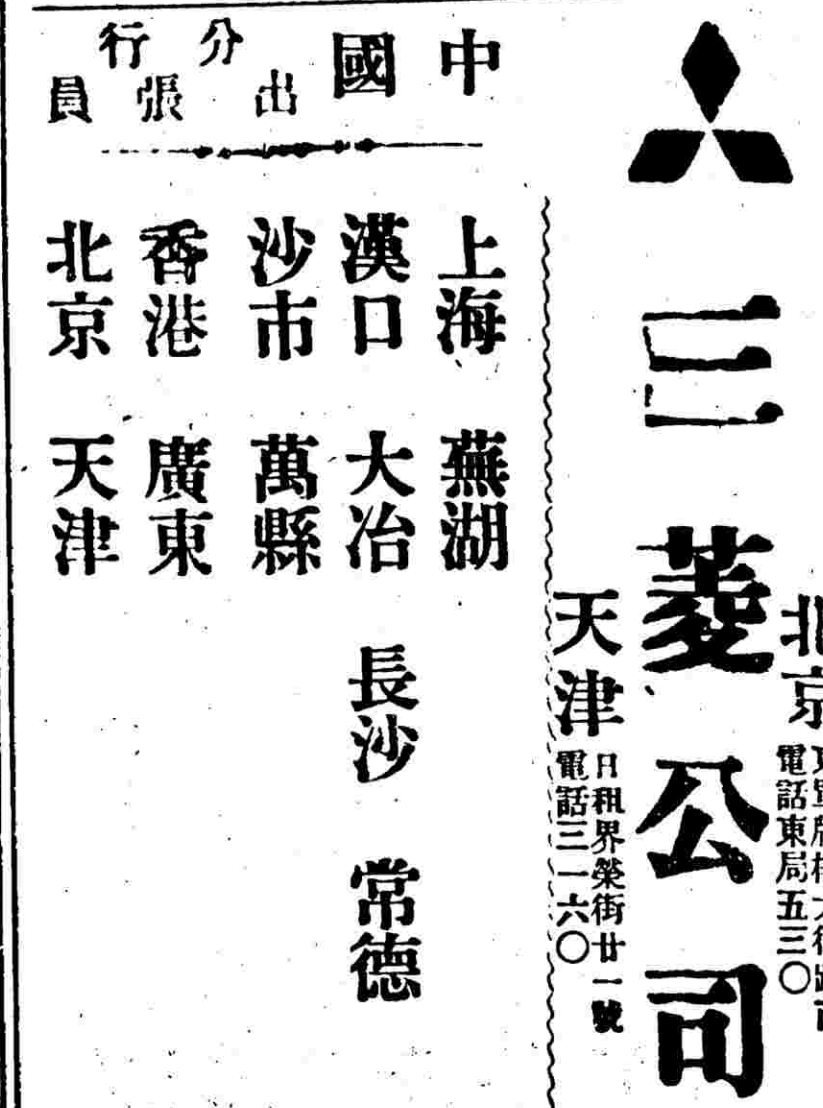 三菱公司
北京
電話東局五三〇
天津
日租界榮街廿一號
電話三一六〇
中國
分行
出張員
上海 蕪湖
漢口 大冶 長沙 常德
沙市 萬縣
香港 廣東
北京 天津